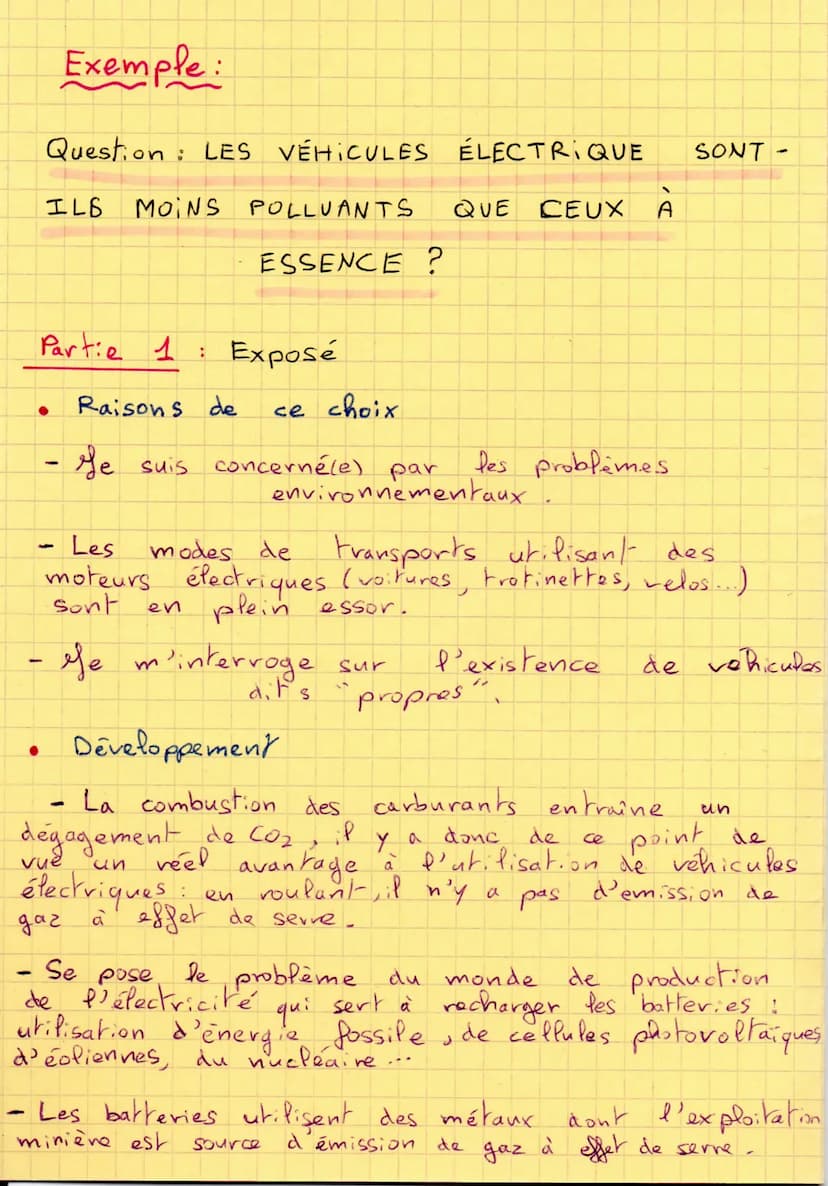 Exemple :
Question : LES VÉHiCULES ÉLECTRiQUE SONT -
ILS MOiNS POLLUANTS QUE CEUX À
ESSENCE ?
Partie 1 : Exposé
• Raisons de ce choix
- Je suis concerné(e) par les problèmes
environnementaux .
- Les modes de transports utilisant des
moteurs électriques (voitures, trotinettes, velos...)
sont en plein essor.
- Je m'interroge sur l'existence de véhicules
dit's "propres".
• Développement
- La combustion des carburants entraîne un
dégagement de CO2 , il y a donc de ce point de
vue un réel avantage à l'utilisation de véhicules
électriques : en roulant, il n'y a pas d'emission de
gaz à effet de serre.
- Se pose le problème du monde de production
de l'électricité qui sert à recharger les batteries :
utilisation d'énergie fossile , de cellules photovoltaïques
d'éoliennes, du nucléaire ...
- Les batteries utilisent des métaux dont l'exploitation
minière est source d'émission de gaz à effet de serre .